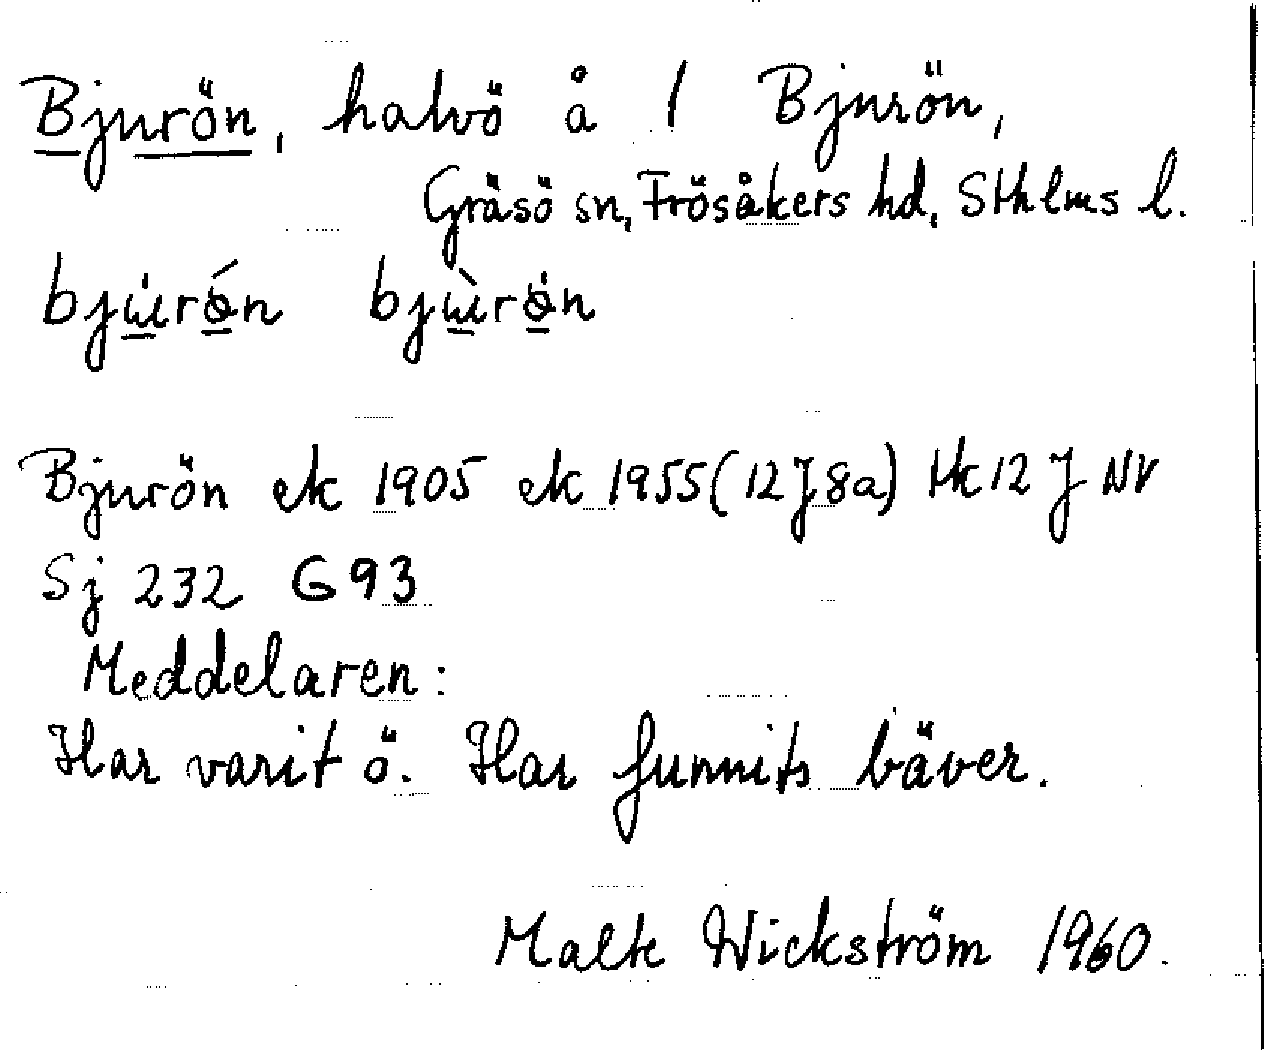 Bjurön, halvö å 1 Bjurön,
Gräsö sn, Frösåkers hd, Sthlms l.
Bjurön ek 1905 ek 1955 (12J 8a) tk 12 J NV
Sj 232 G 93
Meddelaren:
Har varit ö. Har funnits bäver.
Malte Wickström 1960.